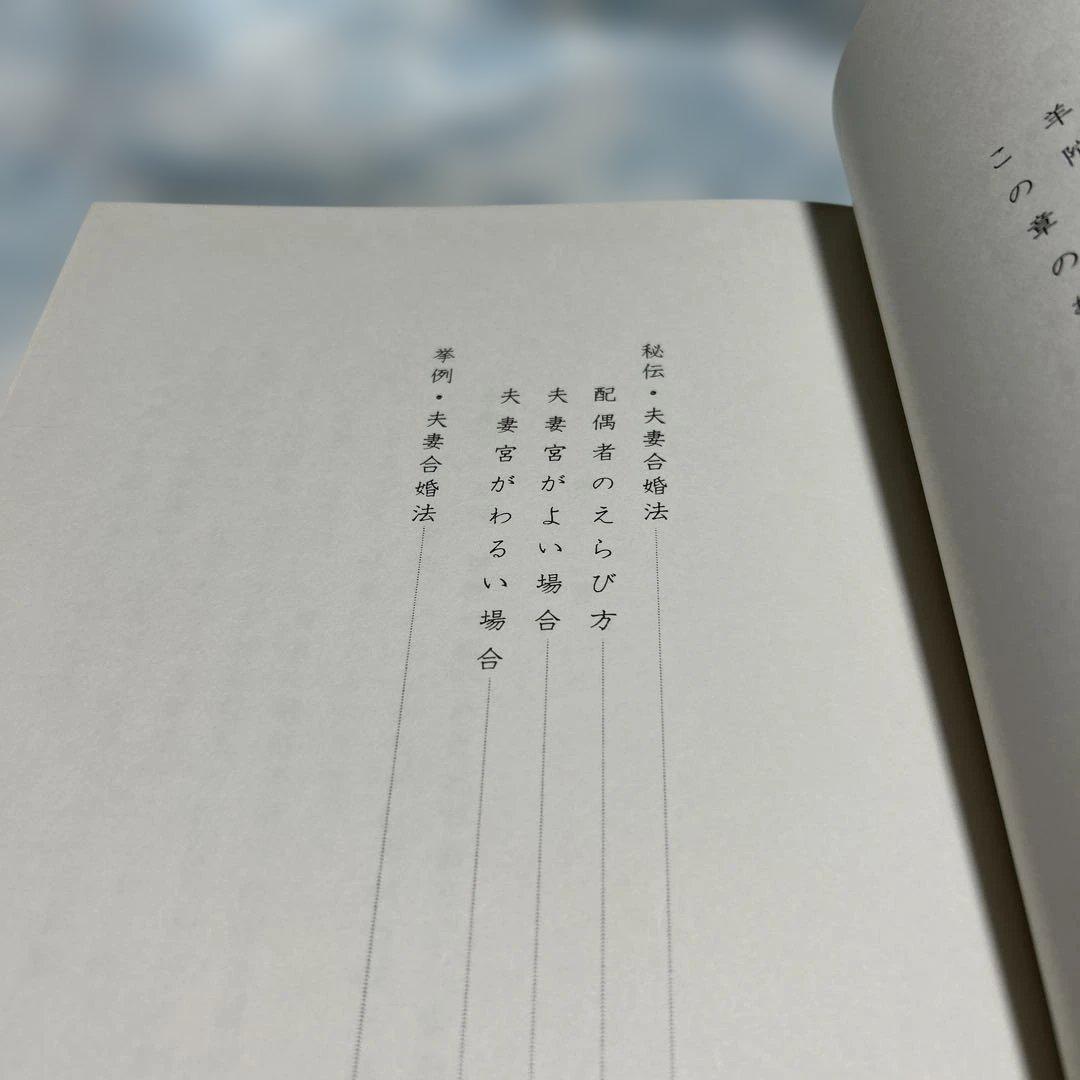 羊
この章の
秘伝・夫妻合婚法
配偶者のえらび方
夫妻宮がよい場合
夫妻宮がわるい場合
挙例・夫妻合婚法